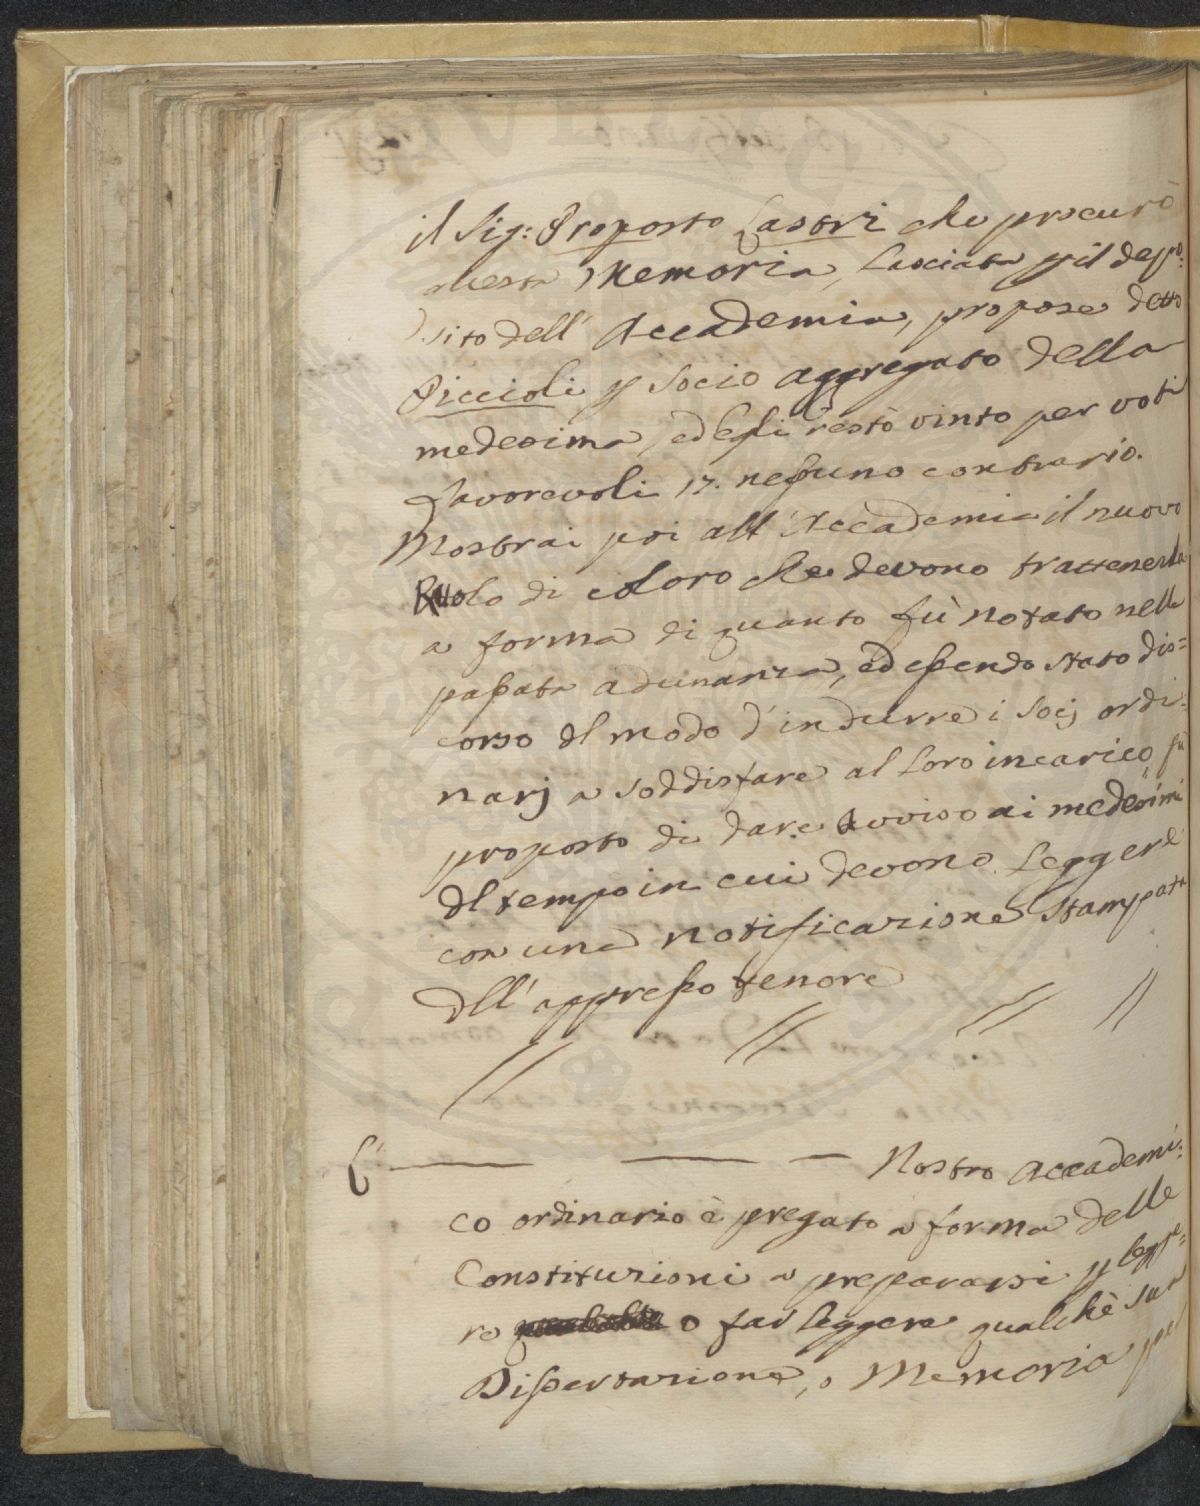 il Sig: Proposto Lastri che procurò
questa Memoria, Lasciata p il depo:
sito dell' Accademia, propose detto
Piccioli p Socio aggregato della
medesima, ed egli restò vinto per voti
favorevoli 17. nessuno contrario.
Mostrai poi all' Accademia il nuovo
Ruolo di coloro che devono trattenerla
a forma di quanto fù notato nella
passata adunanza, ed essendo stato dis=
corso del modo d'indurre i Socj ordi=
narj a soddisfare al Loro incarico, fù
proposto di dare avviso ai medesimi
del tempo in cui devono Leggere
con una notificazione Stampata
dell' appresso tenore
// // // //
L' — — — Nostro Accademi:
co ordinario è pregato a forma delle
Constituzioni a prepararsi p legge=
re o far leggere qualchè sua
Dissertazione, o Memoria per